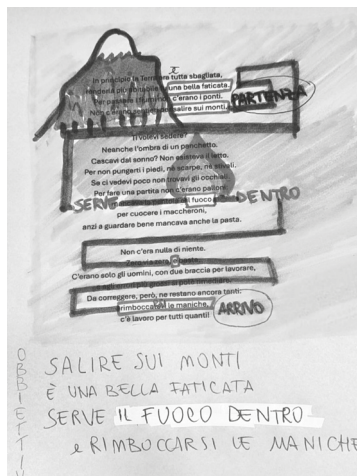 In principio la Terra era tutta sbagliata,
renderla più abitabile fu una bella faticata.
Per passare i fiumi non c'erano i ponti.
Non c'erano sentieri per salire sui monti.
PARTENZA
Ti volevi sedere?
Neanche l'ombra di un panchetto.
Cascavi dal sonno? Non esisteva il letto.
Per non pungerti i piedi, né scarpe, né stivali.
Se ci vedevi poco non trovavi gli occhiali.
Per fare una partita non c'erano palloni
SERVE fuoco DENTRO
per cuocere i maccheroni,
anzi a guardare bene mancava anche la pasta.
Non c'era nulla di niente.
C'erano solo gli uomini, con due braccia per lavorare,
De correggere, però, ne restano ancora tanti:
rimboccatevi le maniche,
c'è lavoro per tutti quanti!
ARRIVO
OBBIETTIV
SALIRE SUI MONTI
È UNA BELLA FATICATA
SERVE IL FUOCO DENTRO
e RIMBOCCARSI LE MANICHE